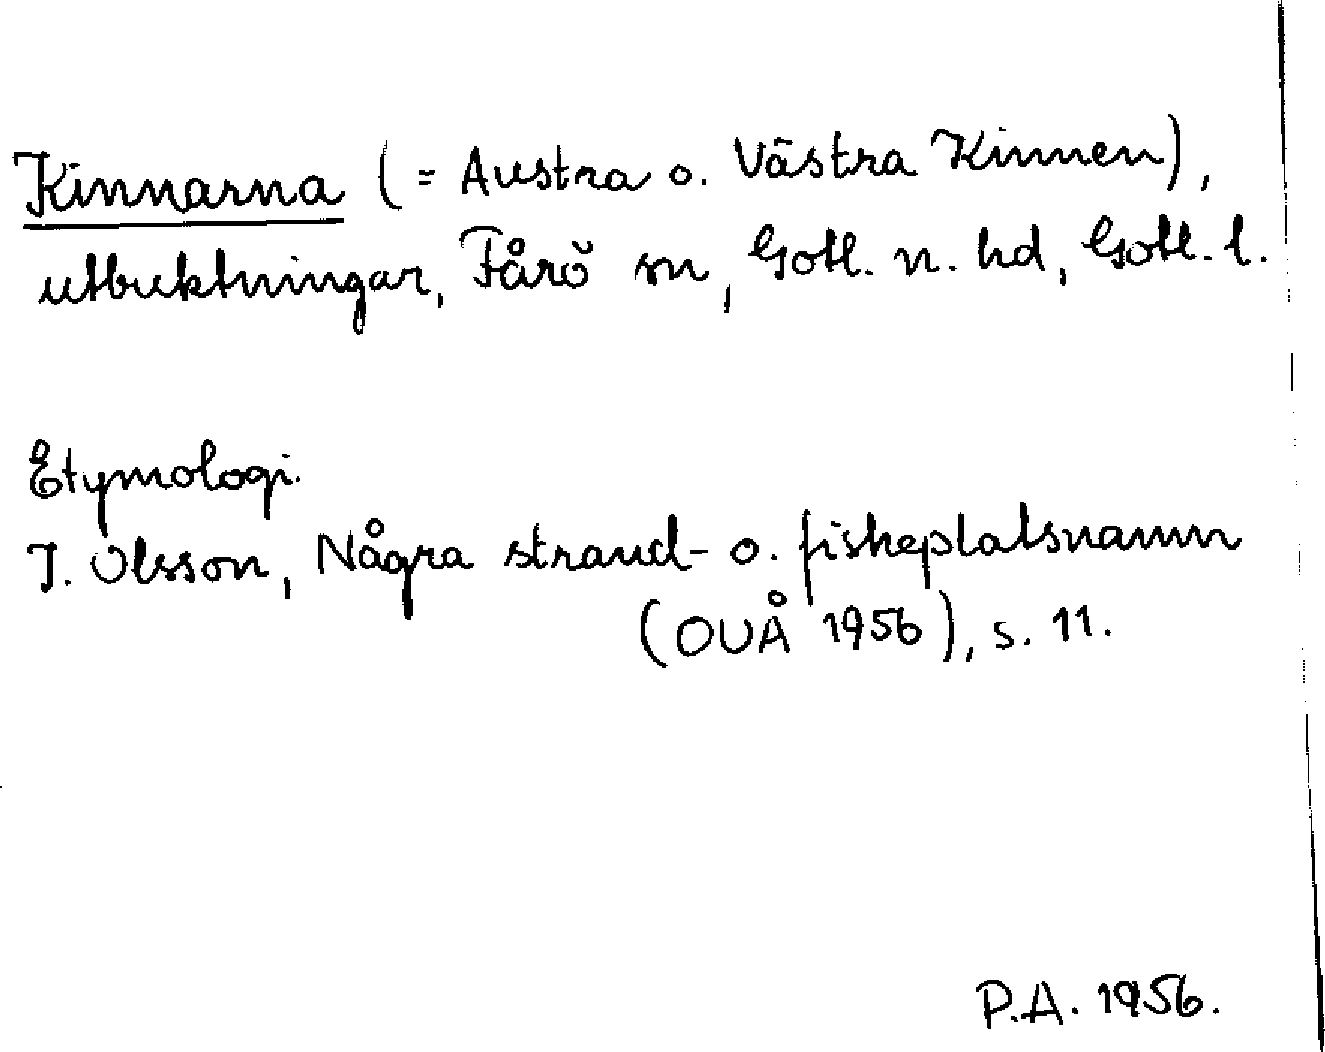 Kinnarna (= Austra o. Västra Kinnen),
utbuktningar, Fårö sn, Gotl. n. hd, Gotl. l.
Etymologi.
I. Olsson, Några strand- o. fiskeplatsnamn
(OUÅ 1956), s. 11.
P.A. 1956.